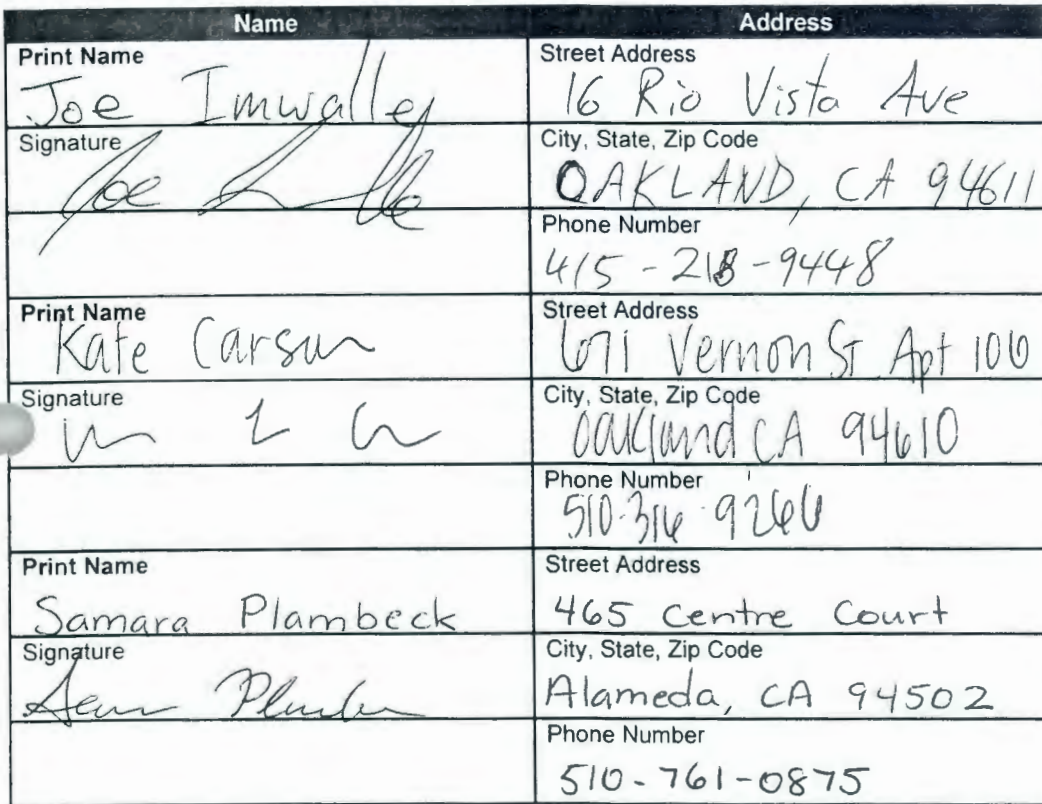 Name Address
Print Name Street Address
Joe Imwalle 16 Rio Vista Ave
Signature City, State, Zip Code
Joe OAKLAND, CA 94611
Phone Number
415-218-9448
Print Name Street Address
Kate Carson 671 Vernon St Apt 106
Signature City, State, Zip Code
Oakland CA 94610
Phone Number
510-316-9266
Print Name Street Address
Samara Plambeck 465 Centre Court
Signature City, State, Zip Code
Alameda, CA 94502
Phone Number
510-761-0875